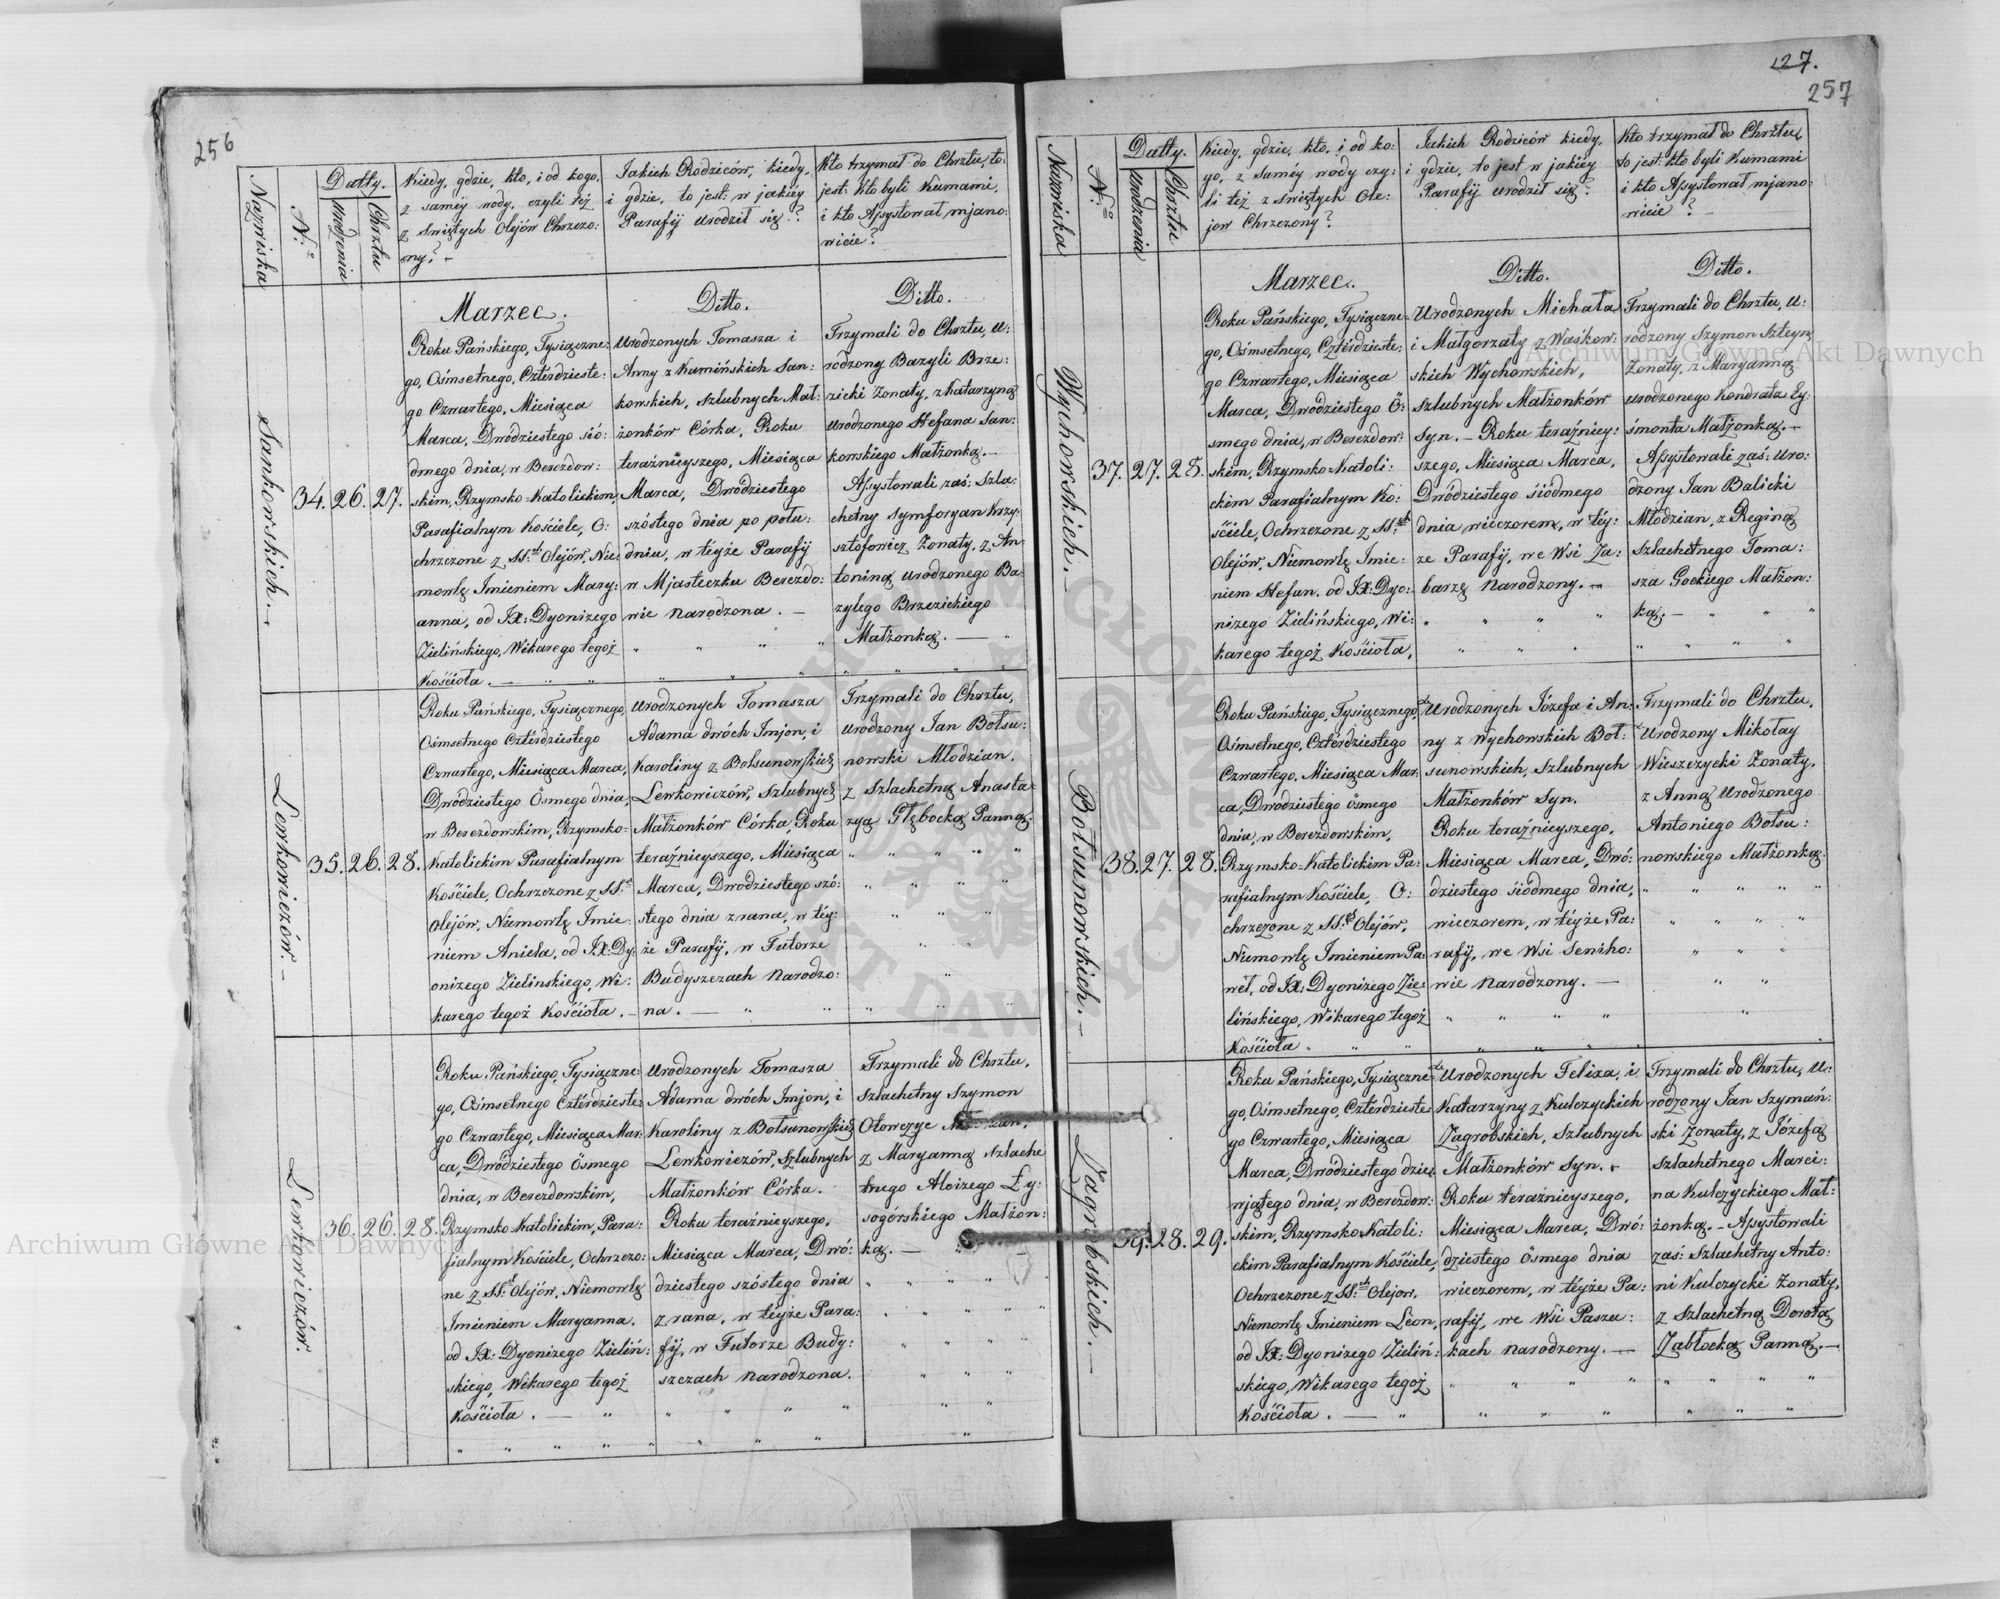 256
Nazwiska
N:o
Datty.
Urodzenia
Chrztu
Kiedy, gdzie, kto, i od kogo,
z saméy wody, czyli też
z świętych Olejów Chrzczo:
ny? –
Jakich Rodziców, kiedy,
i gdzie, to jest: w jakiey
Parafij urodził się?
Kto trzymał do Chrztu, to:
jest: kto byli Kumami,
i kto Assystował mjano:
wicie?
Sankowskich. –
34.
26.
27.
Marzec.
Roku Pańskiego, Tysiączne:
go, Ośmsetnego, Czterdzieste:
go Czwartego, Miesiąca
Marca, Dwódziestego sió:
dmego dnia, w Berezdow:
skim, Rzymsko-Katolickim,
Parafialnym Kościele, O:
chrzczone z SS: Olejów, Nie:
mowlę Imieniem Mary:
anna, od JX: Dyonizego
Zielińskiego, Wikarego tegoż
Kościoła. –
Ditto.
Urodzonych Tomasza i
Anny z Kamińskich San:
kowskich, szlubnych Mał:
żonków Córka, Roku
teraźnieyszego, Miesiąca
Marca, Dwódziestego
szóstego dnia po połu:
dniu, w téyże Parafij
w Mjasteczku Berezdo:
wie narodzona. –
Ditto.
Trzymali do Chrztu, U:
rodzony Bazyli Brze:
zicki Żonaty, z Katarzyną
Urodzonego Stefana San:
kowskiego Małżonką. –
Assystowali zaś: Szla:
chetny Symforyan Krzy:
sztofowicz Żonaty, z An:
toniną Urodzonego Ba:
zylego Brzezickiego
Małżonką. –
Lewkowiczów. –
35.
26.
28.
Roku Pańskiego, Tysiącznego,
Ośmsetnego Czterdziestego
Czwartego, Miesiąca Marca,
Dwódziestego Ósmego dnia,
w Berezdowskim, Rzymsko-
Katolickim Parafialnym
Kościele, Ochrzczone z SS:
Olejów, Niemowlę Imie:
niem Aniela, od JX: Dy:
onizego Zielinskiego, Wi:
karego tegoż Kościoła. –
Urodzonych Tomasza
Adama dwóch Imjon, i
Karoliny z Bołsunowskich
Lewkowiczów, Szlubnych
Małżonków Córka, Roku
teraźnieyszego, Miesiąca
Marca, Dwódziestego szó:
stego dnia z rana, w téy:
że Parafij, w Futorze
Budyszczach Narodzo:
na. –
Trzymali do Chrztu,
Urodzony Jan Bołsu:
nowski Młodzian,
z Szlachetną Anasta:
zyą Głębocką Panną.
Lewkowiczów.
36.
26.
28.
Roku Pańskiego, Tysiączne:
go, Ośmsetnego Czterdzieste:
go Czwartego, Miesiąca Mar:
ca, Dwódziestego Ósmego
dnia, w Berezdowskim,
Rzymsko-Katolickim, Para:
fialnym Kościele, Ochrzczo:
ne z SS: Olejów, Niemowlę
Imieniem Maryanna.
od JX: Dyonizego Zieliń:
skiego, Wikarego tegoż
Kościoła. –
Urodzonych Tomasza
Adama dwóch Imjon, i
Karoliny z Bołsunowskich
Lewkowiczów, Szlubnych
Małżonków Córka.
Roku teraźnieyszego,
Miesiąca Marca, Dwó:
dziestego szóstego dnia
z rana, w téyże Para:
fij, w Futorze Budy:
szczach narodzona.
Trzymali do Chrztu,
Szlachetny Szymon
Otowczyc
z Maryanną Szlache
tnego Aloizego Ły:
sogórskiego Małżon:
ką. –
127.
257
Nazwiska
N:o
Datty.
Urodzenia
Chrztu
Kiedy, gdzie, kto, i od ko:
go, z saméy wody czy:
li też z świętych Ole:
jow Chrzczony?
Jakich Rodziców kiedy,
i gdzie, to jest w jakiéy
Parafij urodził się?
Kto trzymał do Chrztu,
to jest: kto byli Kumami
i kto Assystował mjano:
wicie? –
Wychowskich. –
37.
27.
28.
Marzec.
Roku Pańskiego, Tysiączne:
go, Ośmsetnego, Czterdzieste:
go Czwartego, Miesiąca
Marca, Dwódziestego Ó:
smego dnia, w Berezdow:
skim, Rzymsko-Katoli:
ckim Parafialnym Ko:
ściele, Ochrzczone z SS:
Olejów, Niemowlę Imie:
niem Stefan. od JX: Dyo:
nizego Zielińskiego, Wi:
karego tegoż Kościoła,
Ditto.
Urodzonych Michała
i Małgorzaty z Waśkow:
skich Wychowskich,
Szlubnych Małżonków
Syn. – Roku teraźniey:
szego, Miesiąca Marca,
Dwódziestego siódmego
dnia wieczorem, w téy:
że Parafij, we Wsi Za:
barzę Narodzony. –
Ditto.
Trzymali do Chrztu, U:
rodzony Szymon Szteyn
Żonaty, z Maryanną
Urodzonego Kondrata Ey:
śmonta Małżonką. –
Assystowali zaś: Uro:
dzony Jan Balicki
Młodzian, z Reginą
Szlachetnego Toma:
sza Gockiego Małżon:
ką. –
Bołsunowskich. –
38.
27.
28.
Roku Pańskiego, Tysiącznego,
Ośmsetnego, Czterdziestego
Czwartego, Miesiąca Mar:
ca, Dwódziestego ósmego
dnia, w Berezdowskim,
Rzymsko-Katolickim Pa:
rafialnym Kościele, O:
chrzczone z SS: Olejów,
Niemowlę Imieniem Pa:
weł, od JX: Dyonizego Zie:
lińskiego, Wikarego tegoż
Kościoła
Urodzonych Józefa i An:
ny z Wychowskich Boł:
sunowskich, Szlubnych
Małżonków Syn.
Roku teraźnieyszego,
Miesiąca Marca, Dwó:
dziestego siódmego dnia,
wieczorem, w téyże Pa:
rafij, we Wsi Seniho:
wie Narodzony. –
Trzymali do Chrztu,
Urodzony Mikołay
Wieszczycki Żonaty,
z Anną Urodzonego
Antoniego Bołsu:
nowskiego Małżonką.
Zagrobskich. –
39.
28.
29.
Roku Pańskiego, Tysiączne:
go, Ośmsetnego, Czterdzieste:
go Czwartego, Miesiąca
Marca, Dwódziestego dzie:
wjątego dnia, w Berezdow:
skim, Rzymsko-Katoli:
ckim Parafialnym Kościele,
Ochrzczone z SS: Olejow,
Niemowlę Imieniem Léon,
od JX: Dyonizego Zieliń:
skiego, Wikarego tegoż
Kościoła. –
Urodzonych Felixa, i
Katarzyny z Kulczyckich
Zagrobskich, Szlubnych
Małżonków Syn.
Roku teraźnieyszego,
Miesiąca Marca, Dwó:
dziestego Ósmego dnia
wieczorem, w téyże Pa:
rafij, we Wsi Paszu:
kach narodzony. –
Trzymali do Chrztu, U:
rodzony Jan Szymań:
ski Żonaty, z Józefą
Szlachetnego Marci:
na Kulczyckiego Mał:
żonką. – Assystowali
zaś: Szlachetny Anto:
ni Kulczycki Żonaty,
z Szlachetną Dorotą
Zabłocką Panną. –
Archiwum Główne Akt Dawnych
Archiwum Główne Akt Dawnych